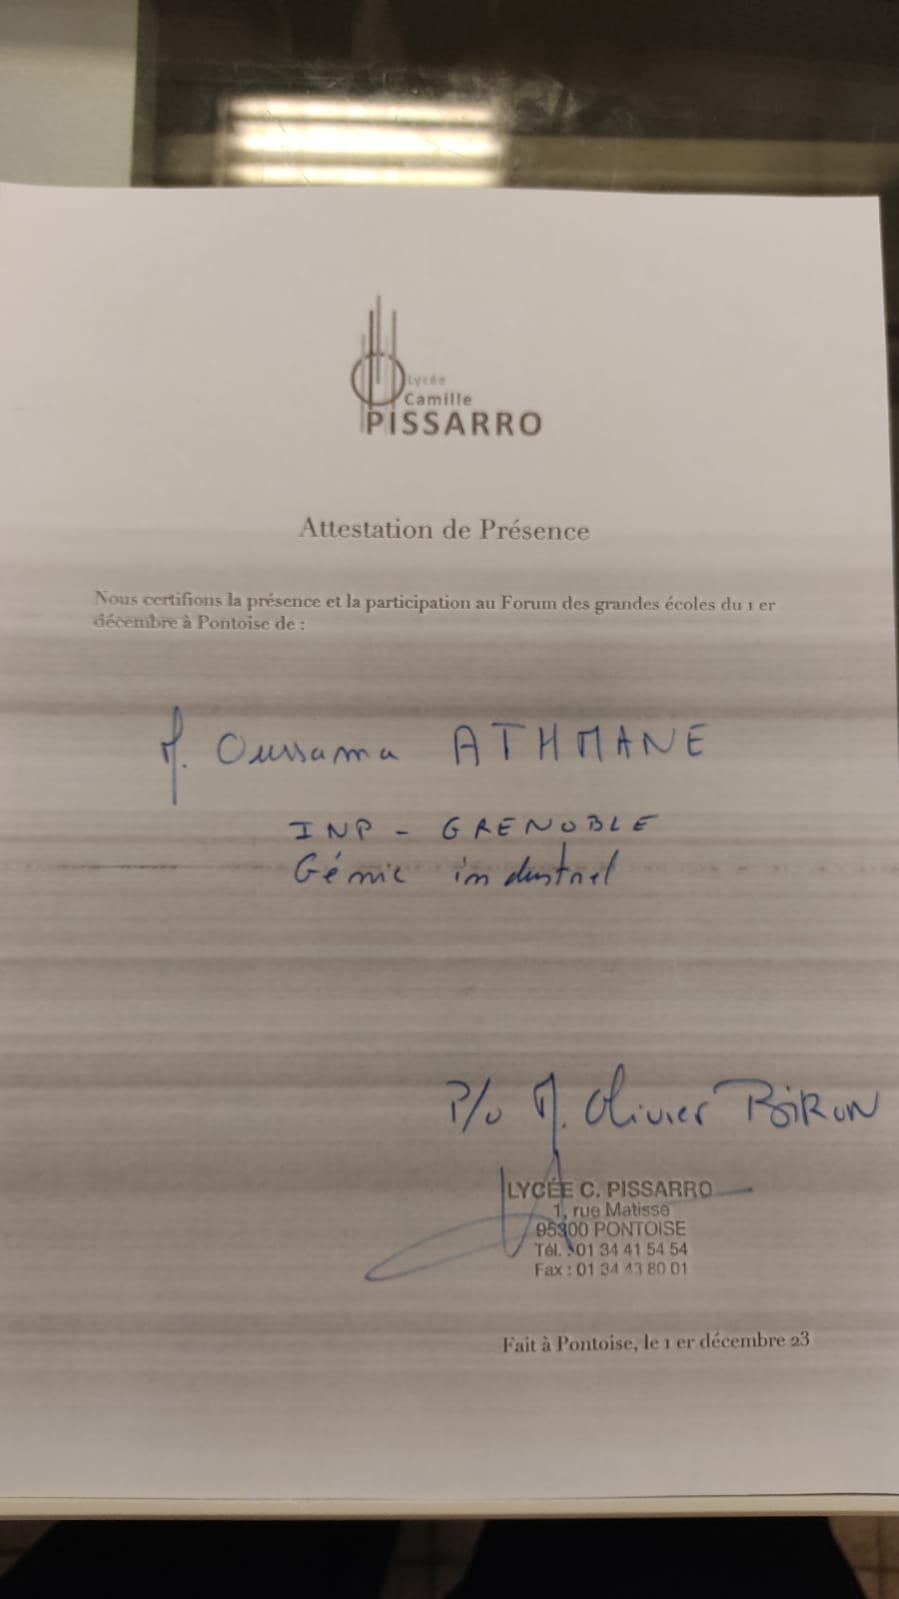 Lycée
Camille
PISSARRO
Attestation de Présence
Nous certifions la présence et la participation au Forum des grandes écoles du 1 er
décembre à Pontoise de :
M. Oussama ATHMANE
INP - GRENOBLE
Génie industriel
P/o M. Olivier BIRON
LYCÉE C. PISSARRO
1, rue Matisse
95300 PONTOISE
Tél. : 01 34 41 54 54
Fax : 01 34 43 80 01
Fait à Pontoise, le 1 er décembre 23